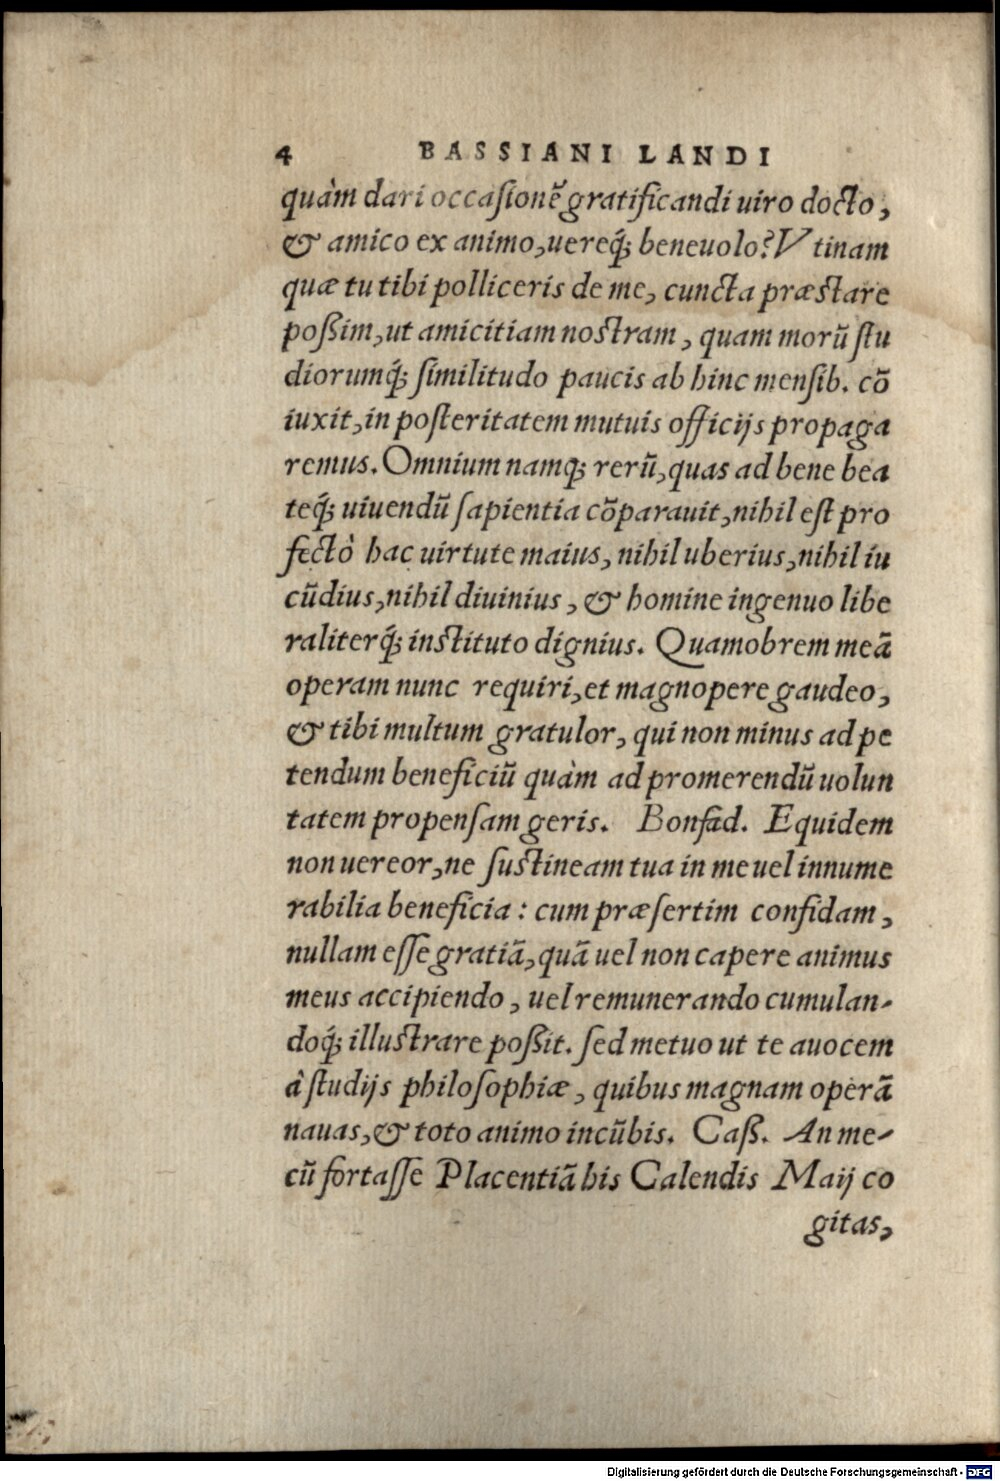 4 BASSIANI LANDI
quàm dari occaſionẽ gratificandi uiro docto,
& amico ex animo, uereq́; beneuolo? Vtinam
quæ tu tibi polliceris de me, cuncta præſtare
poßim, ut amicitiam noſtram, quam morũ ſtu
diorumq́; ſimilitudo paucis ab hinc menſib. cõ
iuxit, in poſteritatem mutuis officijs propaga
remus. Omnium namq; rerũ, quas ad bene bea
teq́; uiuendũ ſapientia cõparauit, nihil eſt pro
fectò hac uirtute maius, nihil uberius, nihil iu
cũdius, nihil diuinius, & homine ingenuo libe
raliterq́; inſtituto dignius. Quamobrem meã
operam nunc requiri, et magnopere gaudeo,
& tibi multum gratulor, qui non minus ad pe
tendum beneficiũ quàm ad promerendũ uolun
tatem propenſam geris. Bonfad. Equidem
non uereor, ne ſuſtineam tua in me uel innume
rabilia beneficia : cum præſertim confidam,
nullam eſſe gratiã, quã uel non capere animus
meus accipiendo, uel remunerando cumulan-
doq́; illuſtrare poßit. ſed metuo ut te auocem
à ſtudijs philoſophiæ, quibus magnam operã
nauas, & toto animo incũbis. Caß. An me-
cũ fortaſſe Placentiã his Calendis Maij co
gitas,
Digitalisierung gefördert durch die Deutsche Forschungsgemeinschaft - DFG